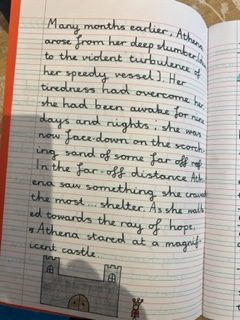 Many months earlier, Athena
arose from her deep slumber [due
to the violent turbulence of
her speedy vessel]. Her
tiredness had overcome her,
she had been awake for nine
days and nights, she was
now face-down on the scorch-
ing sand of some far off
In the far-off distance Ath-
ena saw something she craved
the most... shelter. As she walk-
ed towards the ray of hope,
Athena stared at a magnif-
icent castle.